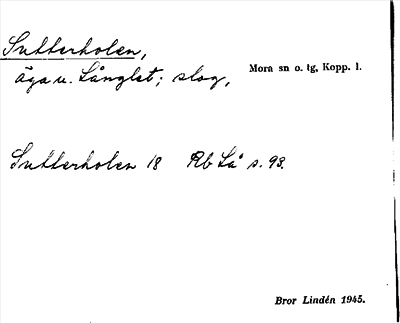 Sutterholen,
äga u. Långlet; slog,
Mora sn o. tg, Kopp. l.
Sutterholen 18 Rb Lå s. 93.
Bror Lindén 1945.